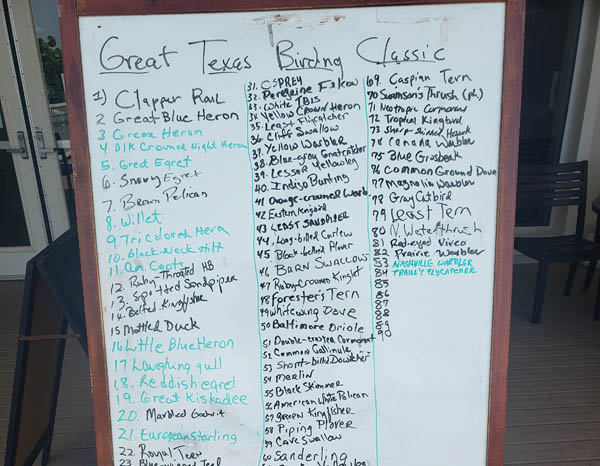 Great Texas Birding Classic
1) Clapper Rail
2 Great Blue Heron
3 Green Heron
4 Blk Crowned Night Heron
5. Great Egret
6. Snowy Egret
7. Brown Pelican
8. Willet
9. Tricolored Heron
10. Black-Neck stilt
11. Am. Coots
12. Ruby-Throated HB
13. Spotted Sandpiper
14. Belted Kingfisher
15 Mottled Duck
16 Little Blue Heron
17 Laughing gull
18. Reddish egret
19. Great Kiskadee
20. Marbled Godwit
21. European starling
22. Royal Tern
23
31. OSPREY
32. Peregrine Falcon
33. White IBIS
34. Yellow Crown Heron
35. Least Flycatcher
36. Cliff Swallow
37. Yellow Warbler
38. Blue-gray Gnatcatcher
39. Lesser Yellowleg
40. Indigo Bunting
41 Orange-crowned Warb
42 Eastern Kingbird
43 LEAST SANDPIPER
44. Long-billed Curlew
45. Black-bellied Plover
46 BARN Swallow
47 Ruby Crowned Kinglet
48 Forester's Tern
49 Whitewing Dove
50 Baltimore Oriole
51 Double-crested Cormorant
52 Common Gallinule
53 Short-billed Dowitcher
54 Merlin
55 Black Skimmer
56 American White Pelican
57 Green Kingfisher
58 Piping Plover
59 Cave Swallow
60 Sanderling
69. Caspian Tern
70 Swainson's Thrush (ph.)
71 Neotropic Cormorant
72 Tropical Kingbird
73 Sharp-shinned Hawk
74 Canada Warbler
75 Blue Grosbeak
76 Common Ground Dove
77 Magnolia Warbler
78 Gray Catbird
79 Least Tern
80 N. Waterthrush
81 Red-eyed Vireo
82 Prairie Warbler
83 NASHVILLE WARBLER
84 TRAILL'S FLYCATCHER
85
86
87
88
89
90